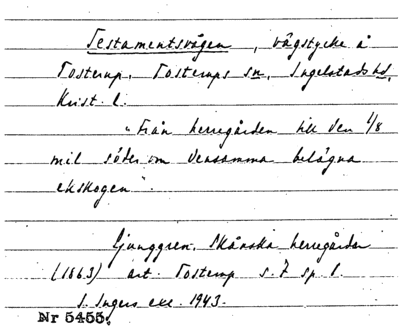 Testamentsvägen, vägstycke å
Tosterup, Tosterups sn, Ingelstads hd,
Krist. l.
"Från herregården till den 1/8
mil söder om densamma belägna
ekskogen".
Ljunggren, Skånska herregårdar
(1863) art. Tosterup s. 7 sp 1.
S. Ingers exc. 1943.
Nr 5455.